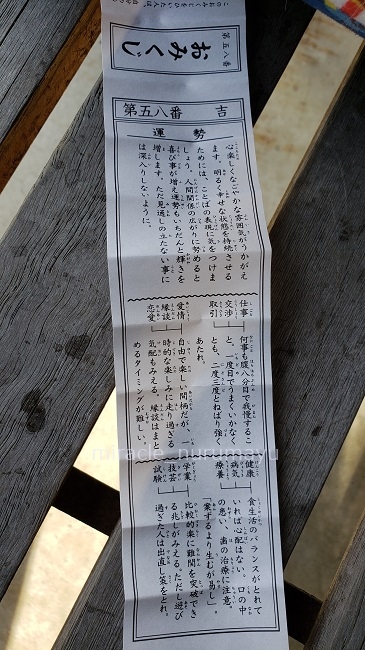 第五八番
おみくじ
第五八番 吉
運勢
心楽しくなごやかな雰囲気がうかがえ
ます。明るく幸せな状態を持続させる
ためには、ことばの表現に気をつけま
しょう。人間関係の広がりに努めると
喜び事が増え運勢もいちだんと輝きを
増します。ただ見通しの立たない事に
は深入りしないように。
仕事
交渉
取引
何事も腹八分目で我慢するこ
と。一度目でうまくいかなく
とも、二度三度とねばり強く
あたれ。
愛情
縁談
恋愛
自由で楽しい間柄だが、一
時的な楽しみに走り過ぎる
気配もみえる。縁談はまと
めるタイミングが難しい。
健康
病気
療養
食生活のバランスがとれて
いれば心配はない。口の中
の患い、歯の治療に注意。
「案ずるより生むが易し」。
学業
技芸
試験
比較的楽に難関を突破でき
る兆しがみえる。ただし遊び
過ぎた人は出直し策をとれ。
miracle_nurumayu